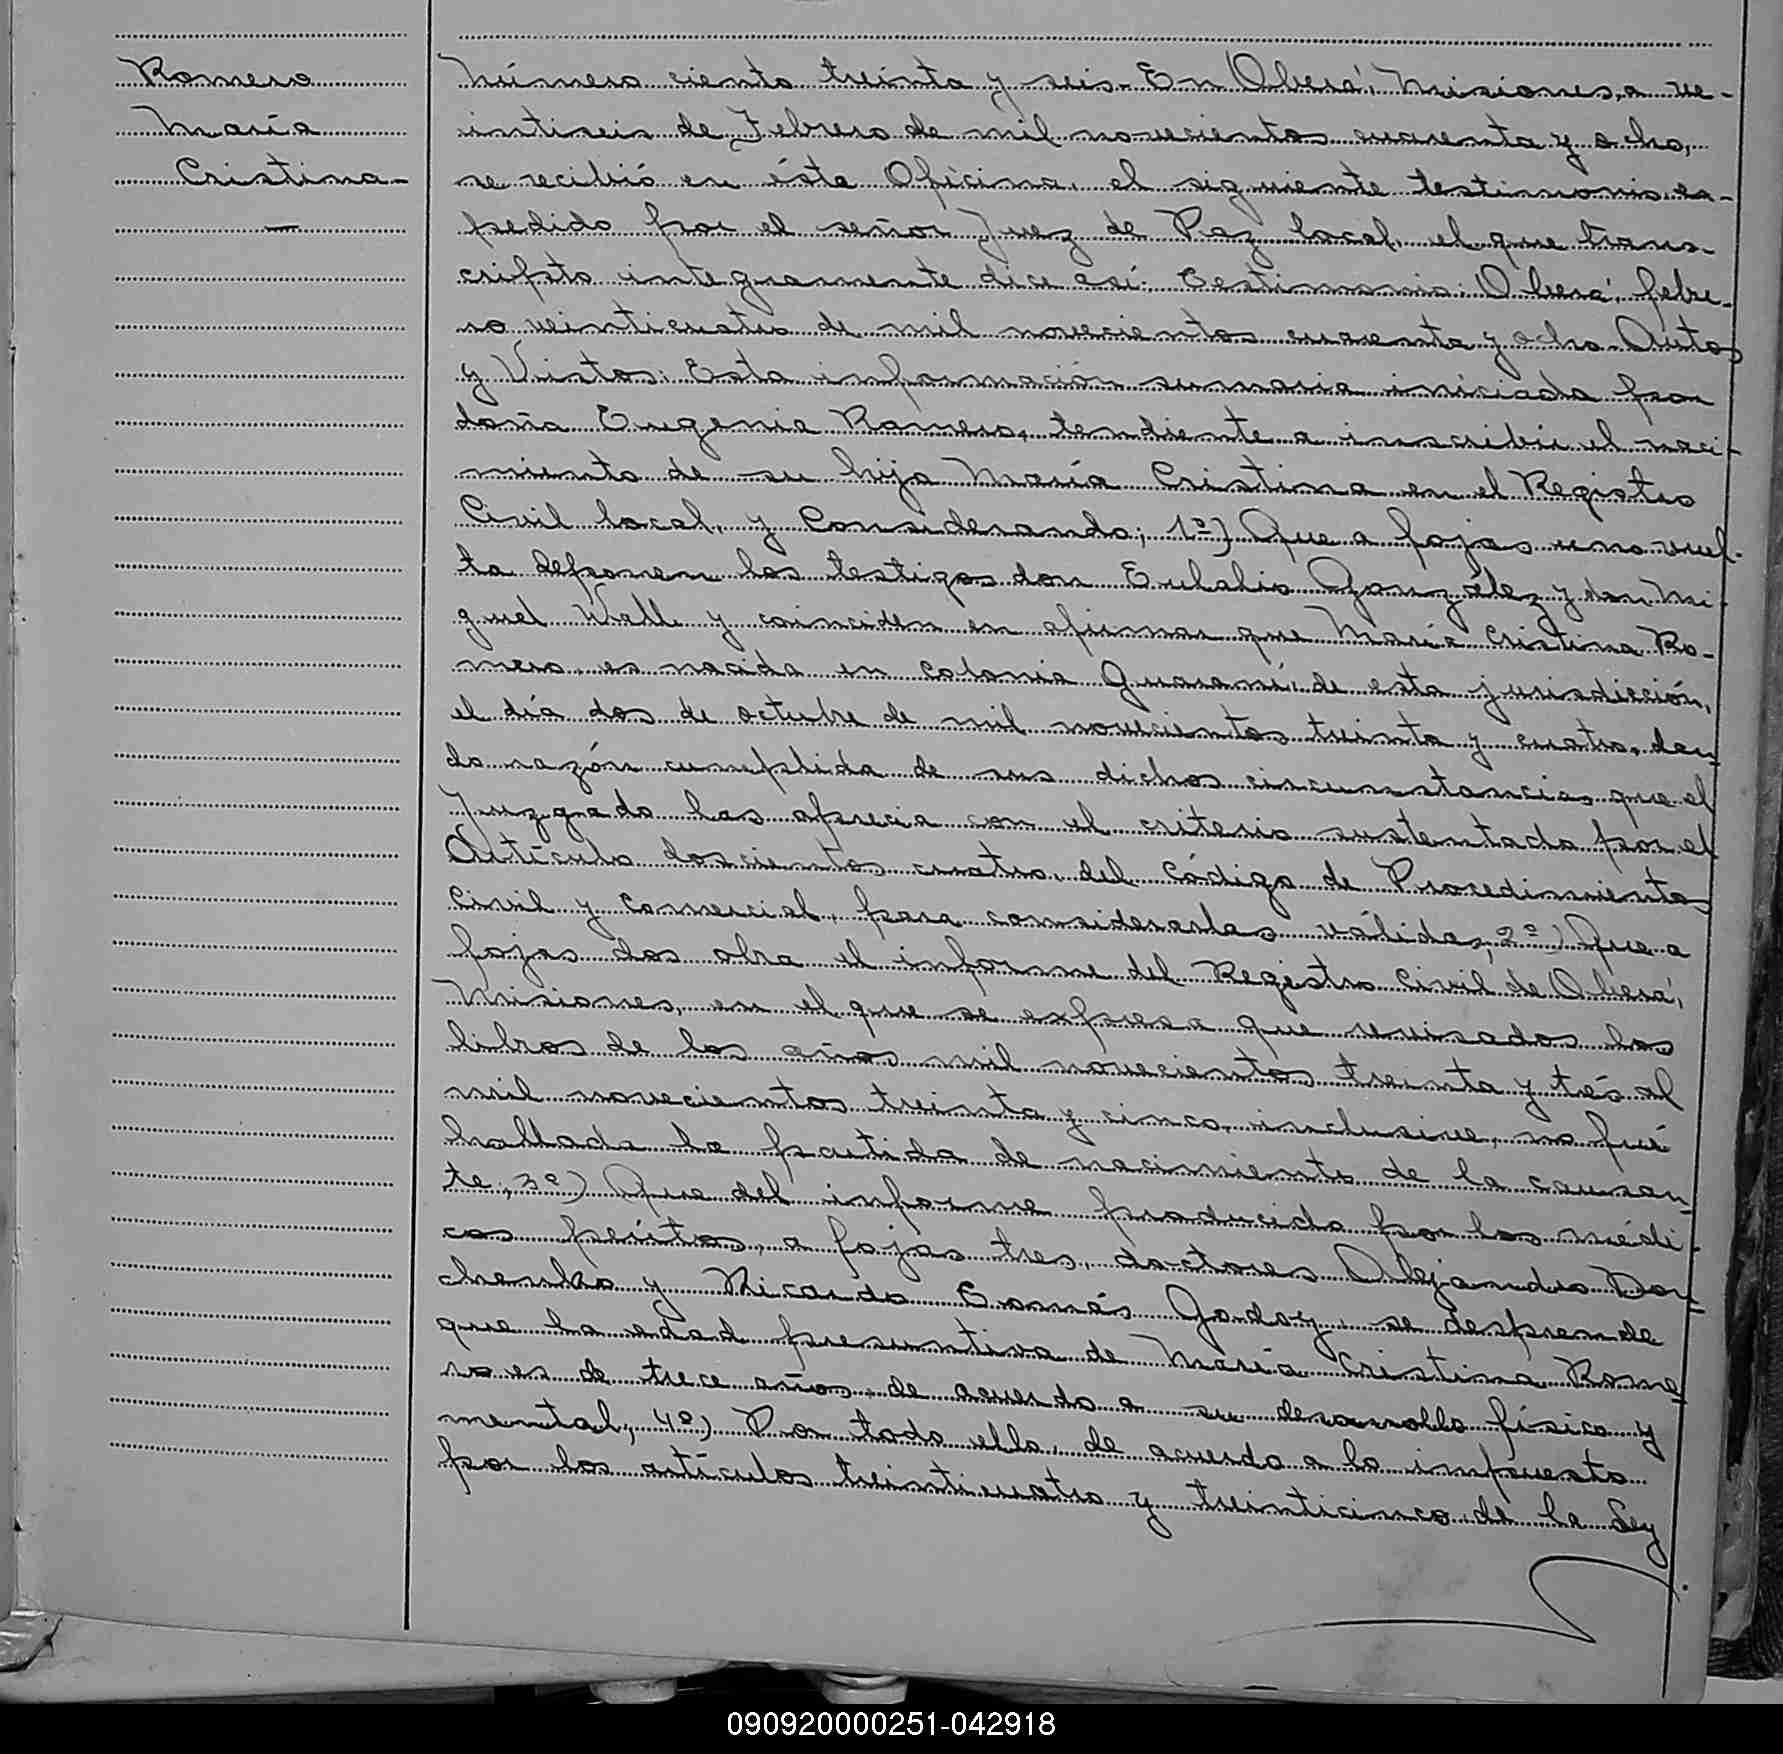 Romero
María
Cristina-
Número ciento treinta y seis.- En Oberá, Misiones, a ve-
intiseis de Febrero de mil novecientos cuarenta y ocho,
se recibió en ésta Oficina, el siguiente testimonio ex-
pedido por el señor Juez de Paz local, el que trans-
cripto integramente dice así: Testimonio: Oberá, febre-
ro veinticuatro de mil novecientos cuarenta y ocho.- Autos
y Vistos: Esta información sumaria iniciada por
doña Eugenia Romero, tendiente a inscribir el naci-
miento de su hija María Cristina en el Registro
Civil local, y Considerando; 1º) Que a fojas uno vuel-
ta deponen los testigos don Eulalio González y don Mi-
guel Wall y coinciden en afirmar que María Cristina Ro-
mero, es nacida en colonia Guaraní, de esta jurisdicción,
el día dos de octubre de mil novecientos treinta y cuatro, dan-
do razón cumplida de sus dichos circunstancias que el
Juzgado las aprecia con el criterio sustentado por el
Artículo doscientos cuatro, del Código de Procedimientos
Civil y Comercial, para considerarlas válidas, 2º) Que a
fojas dos obra el informe del Registro Civil de Oberá,
Misiones, en el que se expresa que revisados los
libros de los años mil novecientos treinta y trés al
mil novecientos treinta y cinco, inclusive, no fué
hallada la partida de nacimiento de la causan-
te, 3º) Que del informe producido por los médi-
cos peritos, a fojas tres, doctores Alejandro Dor-
chenko y Ricardo Tomás Godoy, se desprende
que la edad presuntiva de María Cristina Rome-
ro es de trece años, de acuerdo a su desarrollo físico y
mental, 4º) Por todo ello, de acuerdo a lo impuesto
por los artículos treinticuatro y treinticinco de la Ley
090920000251-042918